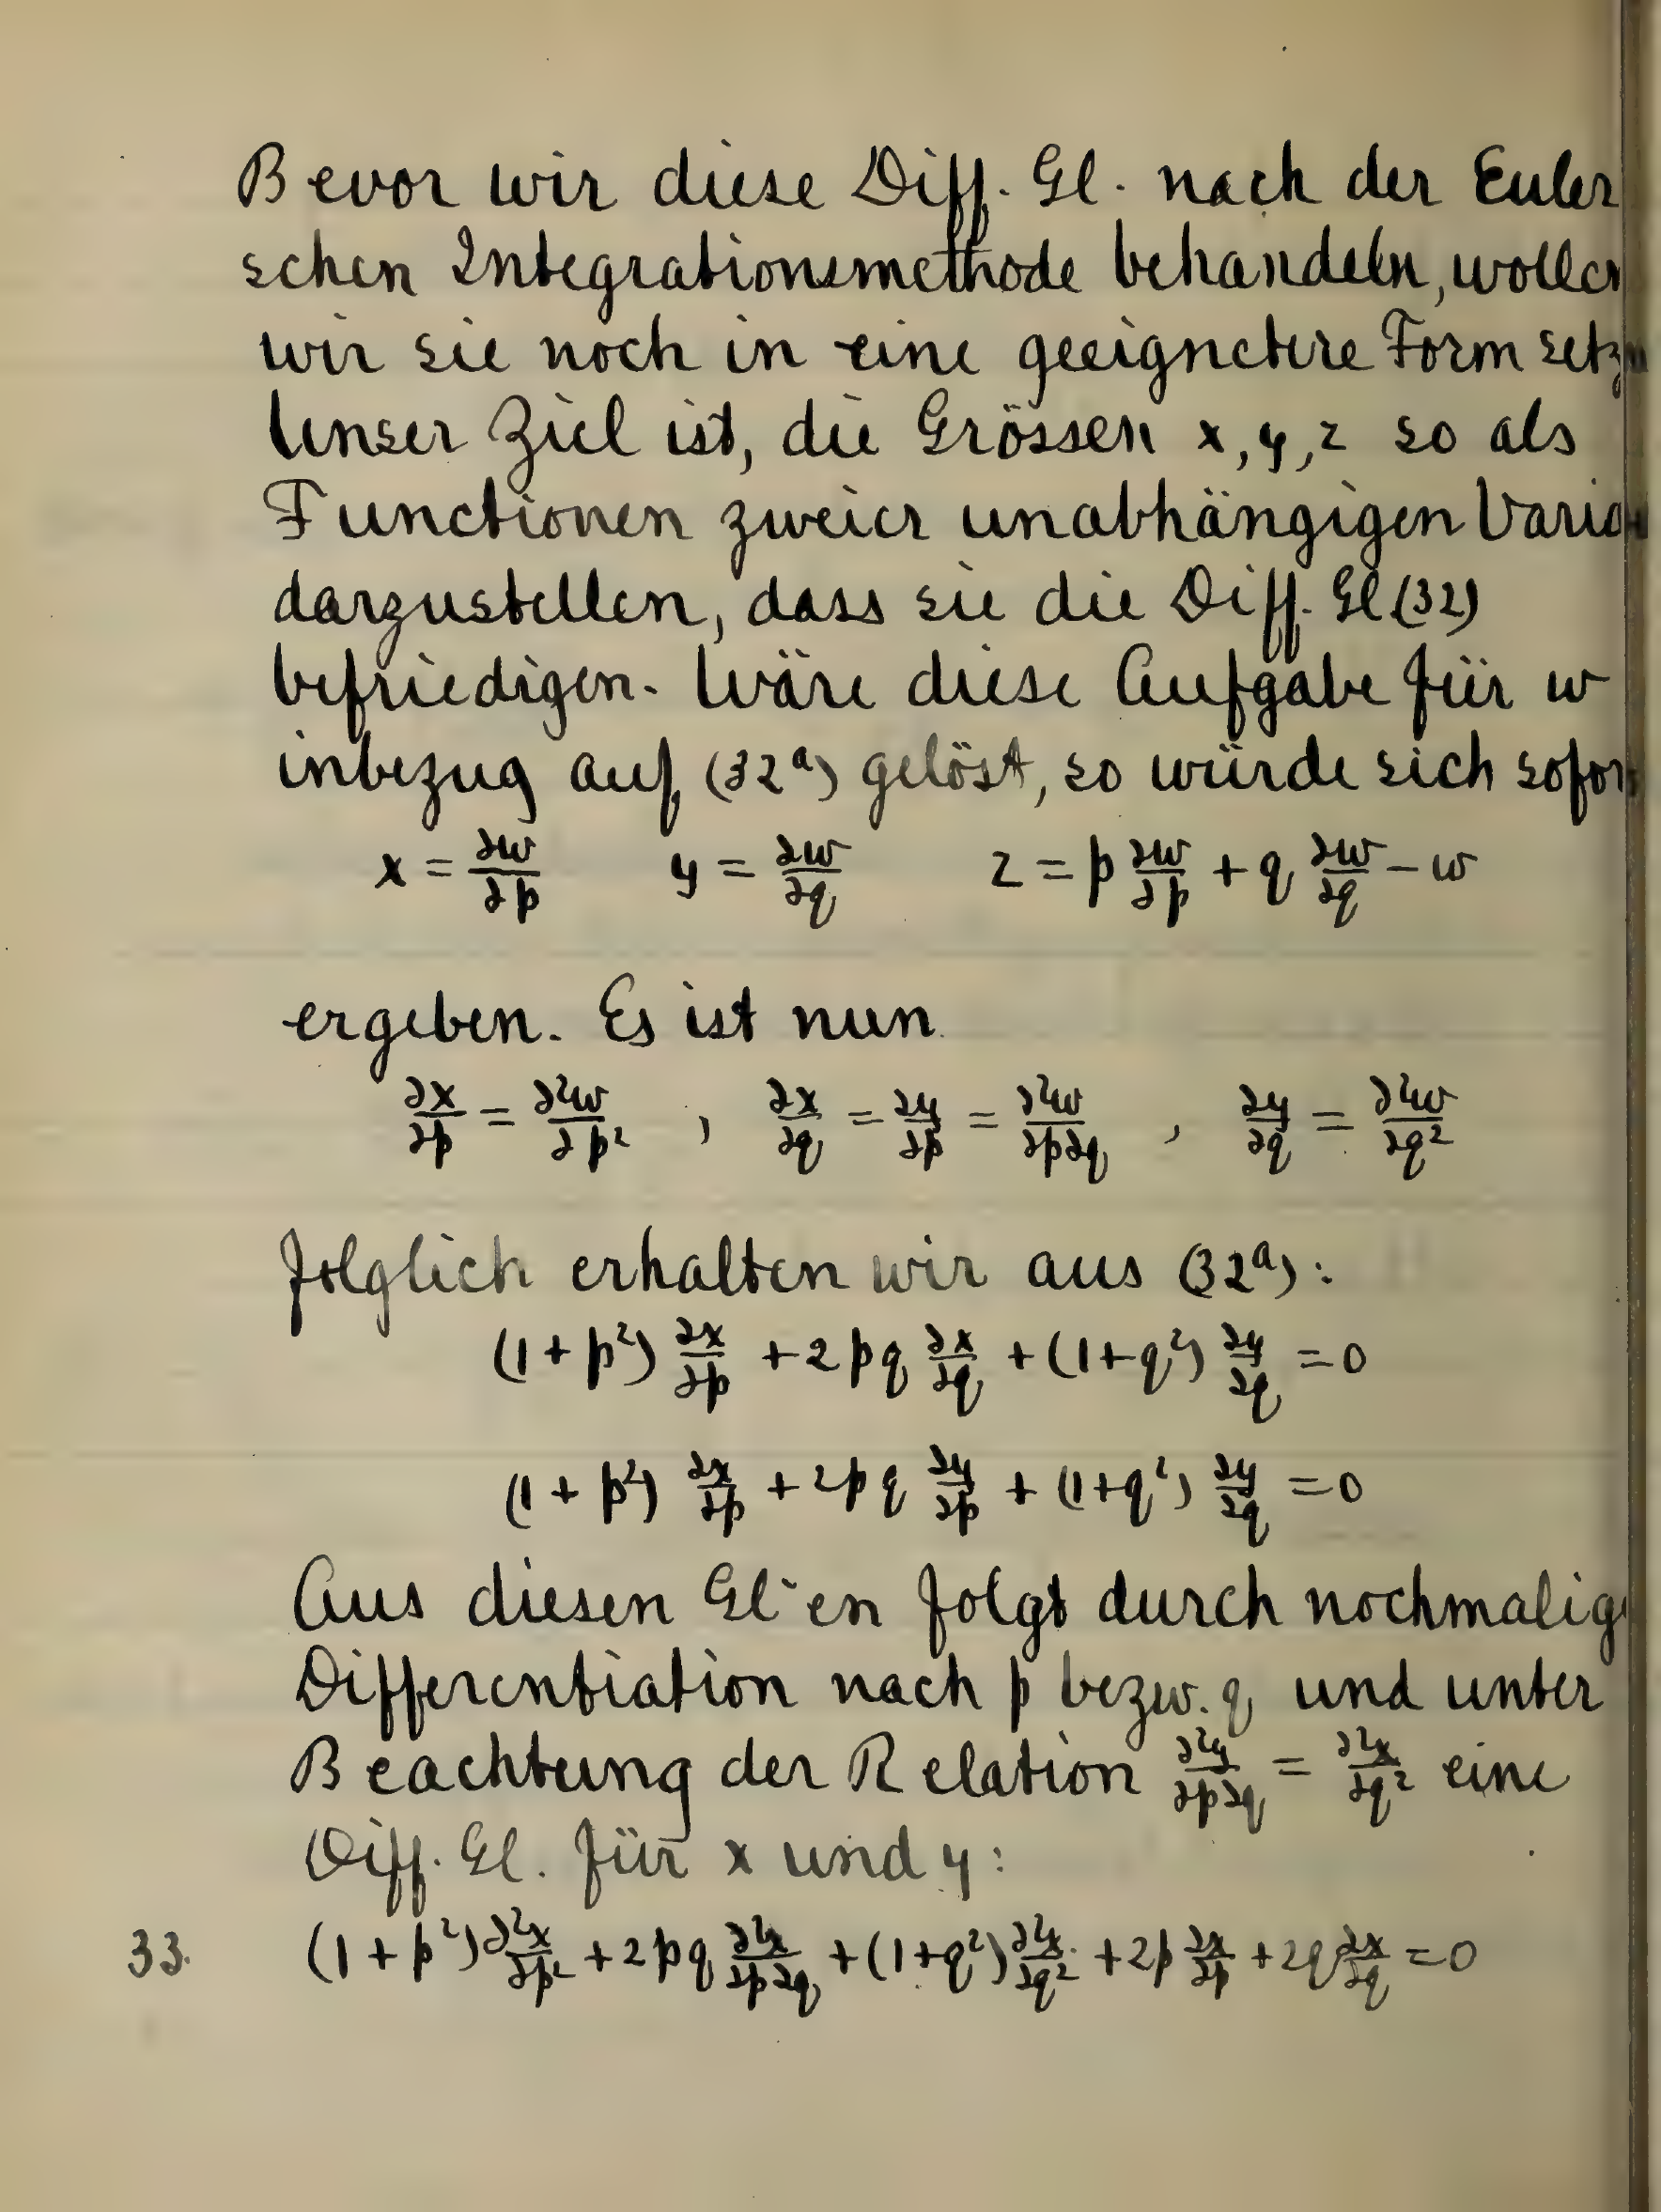 Bevor wir diese Diff. Gl. nach der Euler
schen Integrationsmethode behandeln, wollen
wir sie noch in eine geeignetere Form setzen
Unser Ziel ist, die Grössen x, y, z so als
Functionen zweier unabhängigen Varia
darzustellen, dass sie die Diff. Gl (32)
befriedigen. Wäre diese Aufgabe für w
inbezug auf (32ᵃ) gelöst, so würde sich sofort
x = ∂w/∂p  y = ∂w/∂q  z = p ∂w/∂p + q ∂w/∂q − w
ergeben. Es ist nun
∂x/∂p = ∂²w/∂p² , ∂x/∂q = ∂y/∂p = ∂²w/∂p∂q , ∂y/∂q = ∂²w/∂q²
folglich erhalten wir aus (32ᵃ):
(1 + p²) ∂x/∂p + 2pq ∂x/∂q + (1+q²) ∂y/∂q = 0
(1 + p²) ∂x/∂p + 2pq ∂y/∂p + (1+q²) ∂y/∂q = 0
Aus diesen Gl-en folgt durch nochmalige
Differentiation nach p bezw. q und unter
Beachtung der Relation ∂²y/∂p∂q = ∂²x/∂q² eine
Diff. Gl. für x und y:
33. (1 + p²) ∂²x/∂p² + 2pq ∂²x/∂p∂q + (1+q²) ∂²x/∂q² + 2p ∂x/∂p + 2q ∂x/∂q = 0